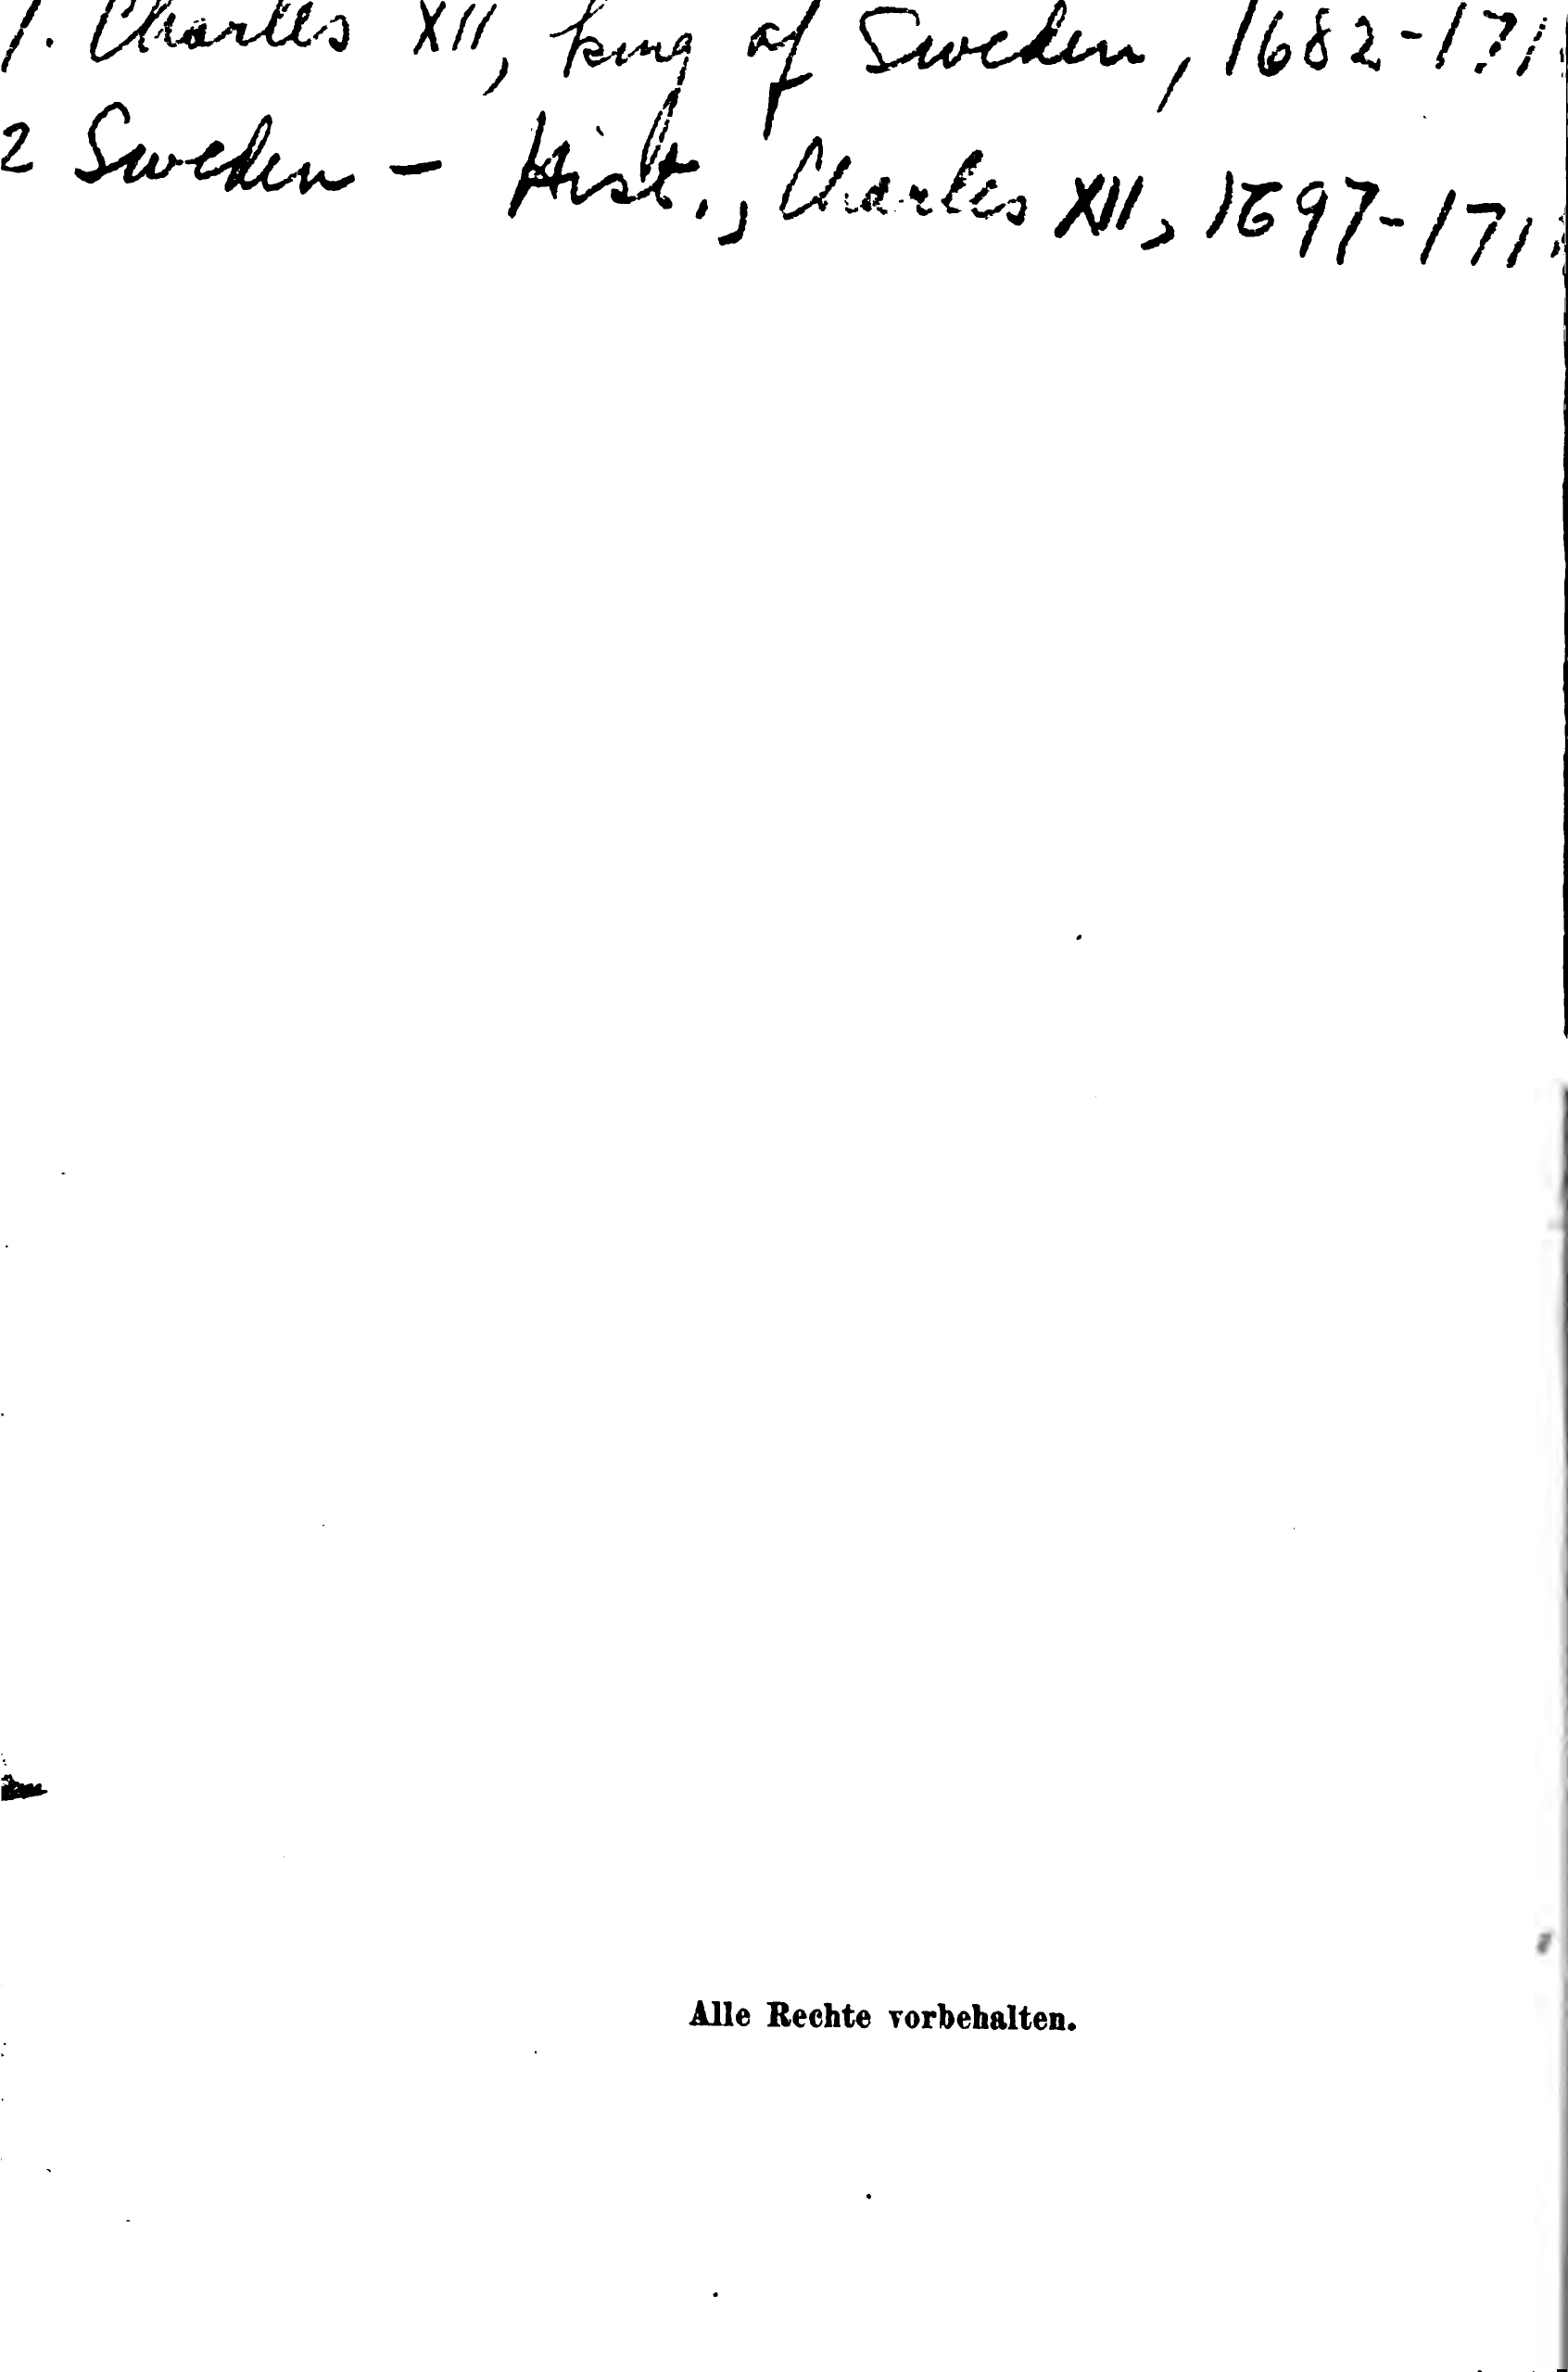 1. Charles XII, king of Sweden, 1682-171
2 Sweden - Hist., Charles XII, 1697-171
Alle Rechte vorbehalten.